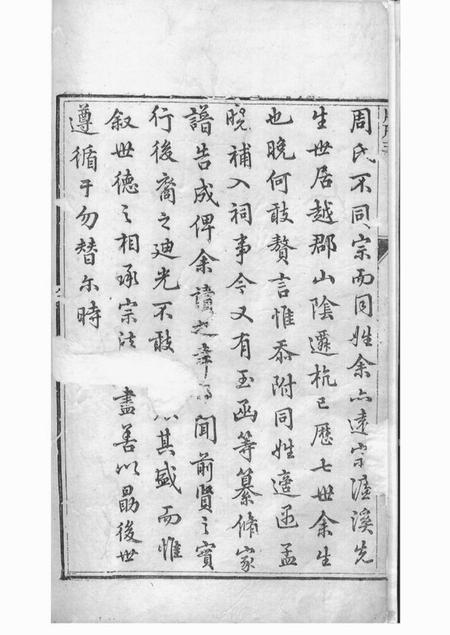 周氏不同宗而同姓余亦遠宗濂溪先
生世居越郡山陰遷杭已歷七世余生
也晚何敢贅言惟忝附同姓適函孟
晚補入祠事今又有玉函等纂修家
譜告成俾余讀之幸得聞前賢之實
行後裔之迪光不敢 其盛而惟
叙世德之相承宗法 盡善以勗後世
遵循于勿替尔時